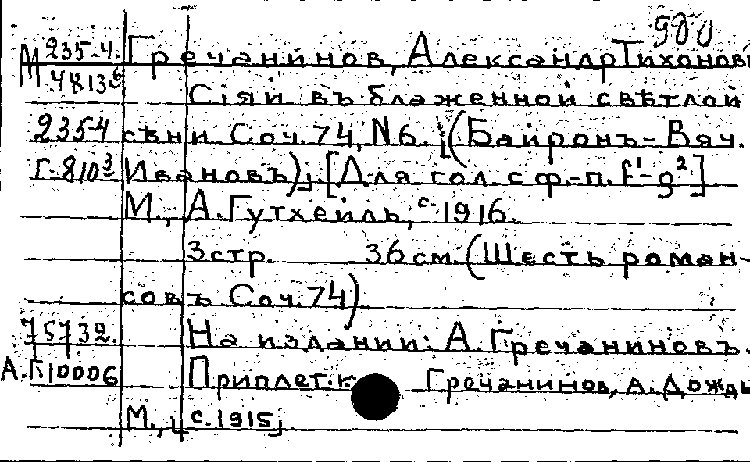 900
М 235-4. Гречанинов, Александр Тихонови
М 4813б Сіяй въ блаженной свѣтлой
235-4 сѣни. Соч.74, N6. (Байронъ-Вяч.
Г-810³ Ивановъ); [Для гол. с ф.-п. f¹-g²]
М., А. Гутхейль, с. 1916.
3 стр. 36 см. (Шесть роман-
совъ Соч.74)
75732. На издании: А. Гречаниновъ.
А.Г10006 Приплет. к Гречанинов, А. Дождь
М., с. 1915